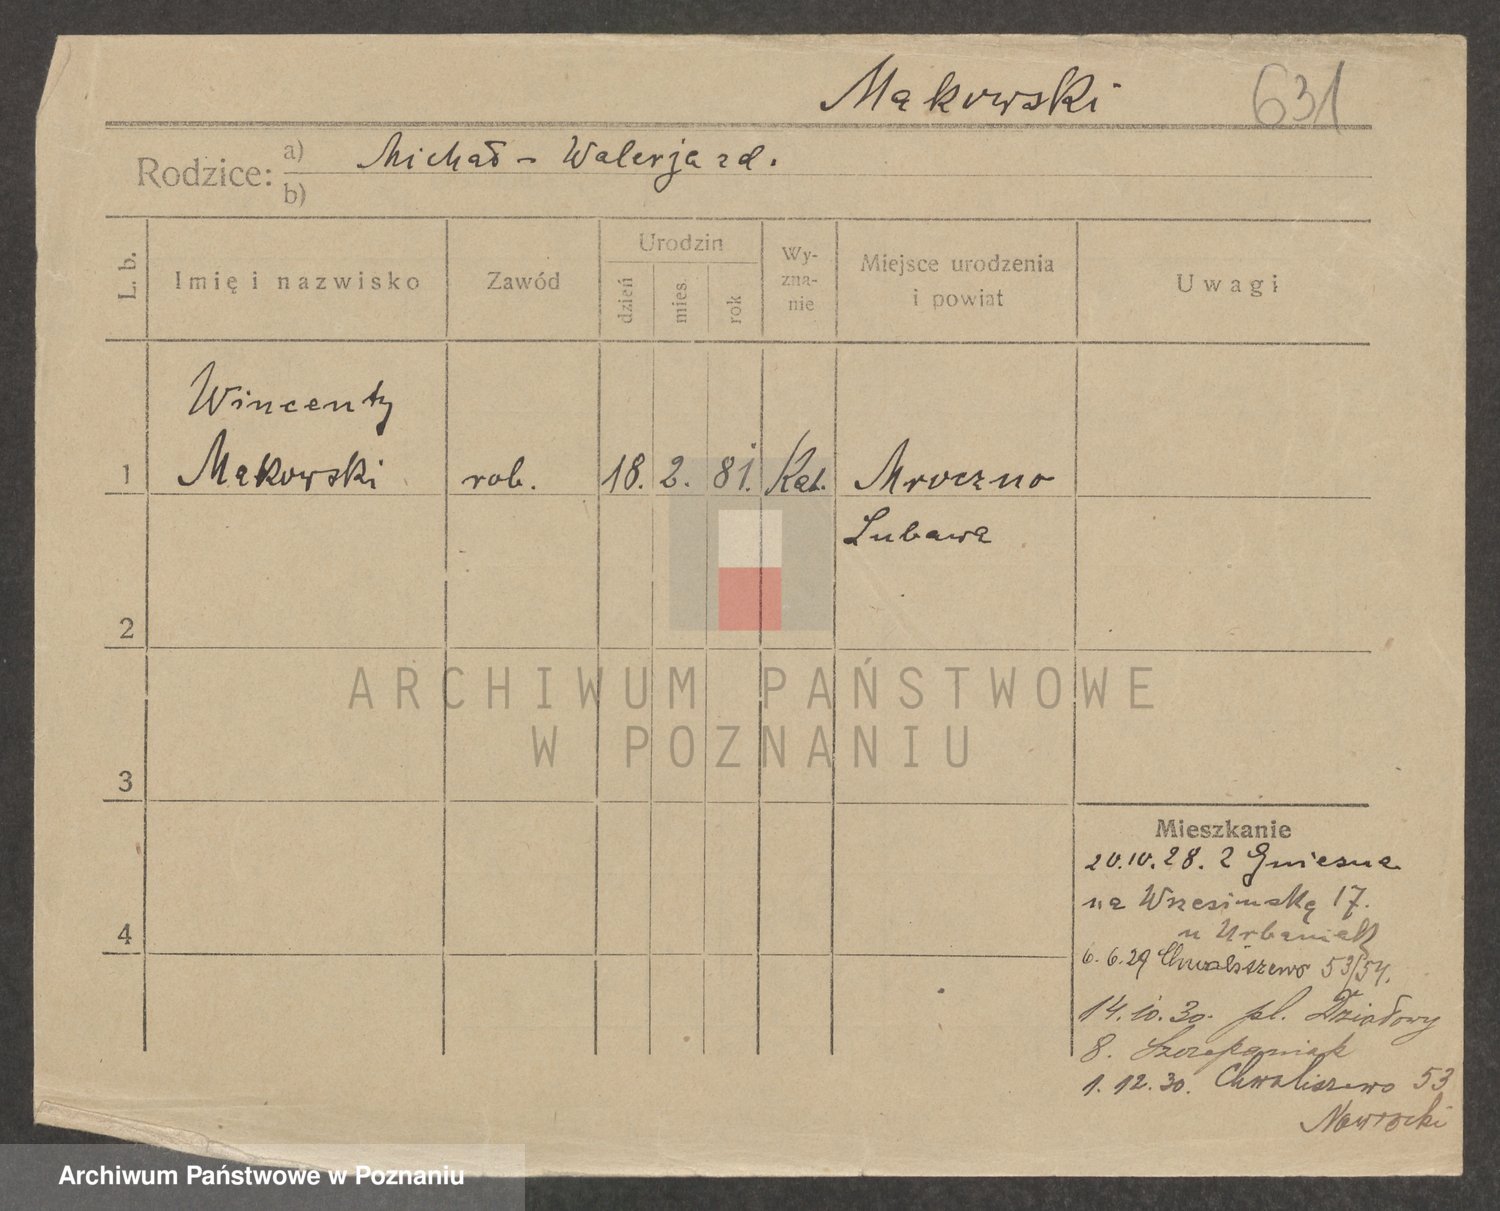 Mąkowski 631
Rodzice: a) Michał - Walerja zd.
b)
L. b. Imię i nazwisko Zawód Urodzin dzień mies. rok Wy-zna-nie Miejsce urodzenia i powiat Uwagi
Wincenty
1 Mąkowski rob. 18. 2. 81. Kat. Mroczno
Lubawa
2
ARCHIWUM PAŃSTWOWE
W POZNANIU
3
Mieszkanie
20.10.28. z Gniezna
na Wrzesińską 17.
4 u Urbaniak
6.6.29 Chwaliszewo 53/54.
14.10.30. pl. Działowy
8. Szczepaniak
1.12.30. Chwaliszewo 53
Nawrocki
Archiwum Państwowe w Poznaniu